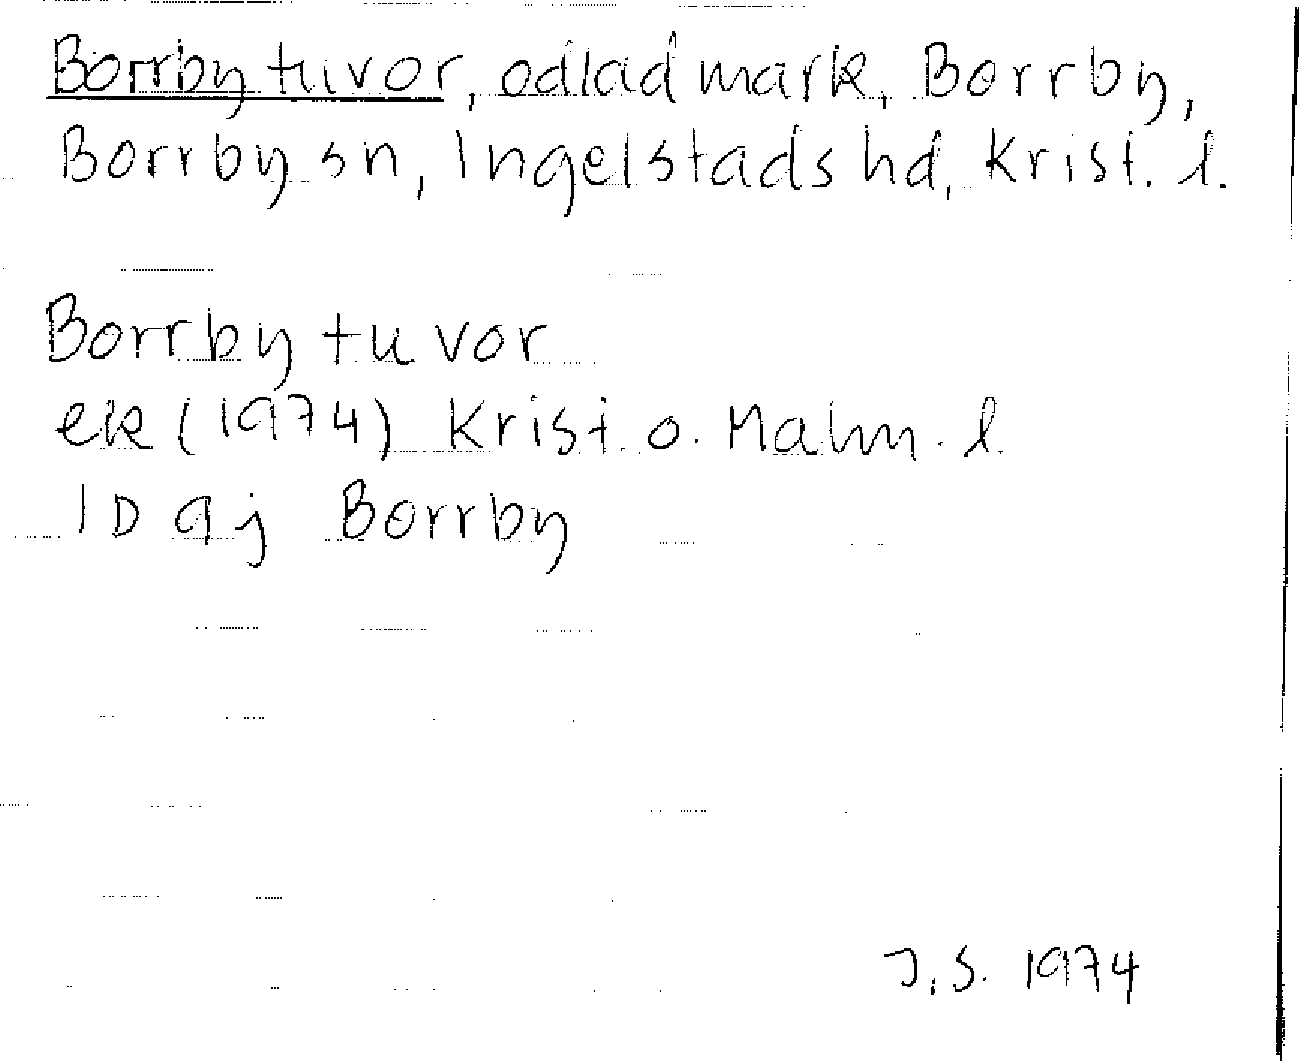 Borrby tuvor, odlad mark, Borrby,
Borrby sn, Ingelstads hd, Krist. l.
Borrby tuvor
ek (1974) Krist. o. Malm. l.
1D 9j Borrby
J.S. 1974